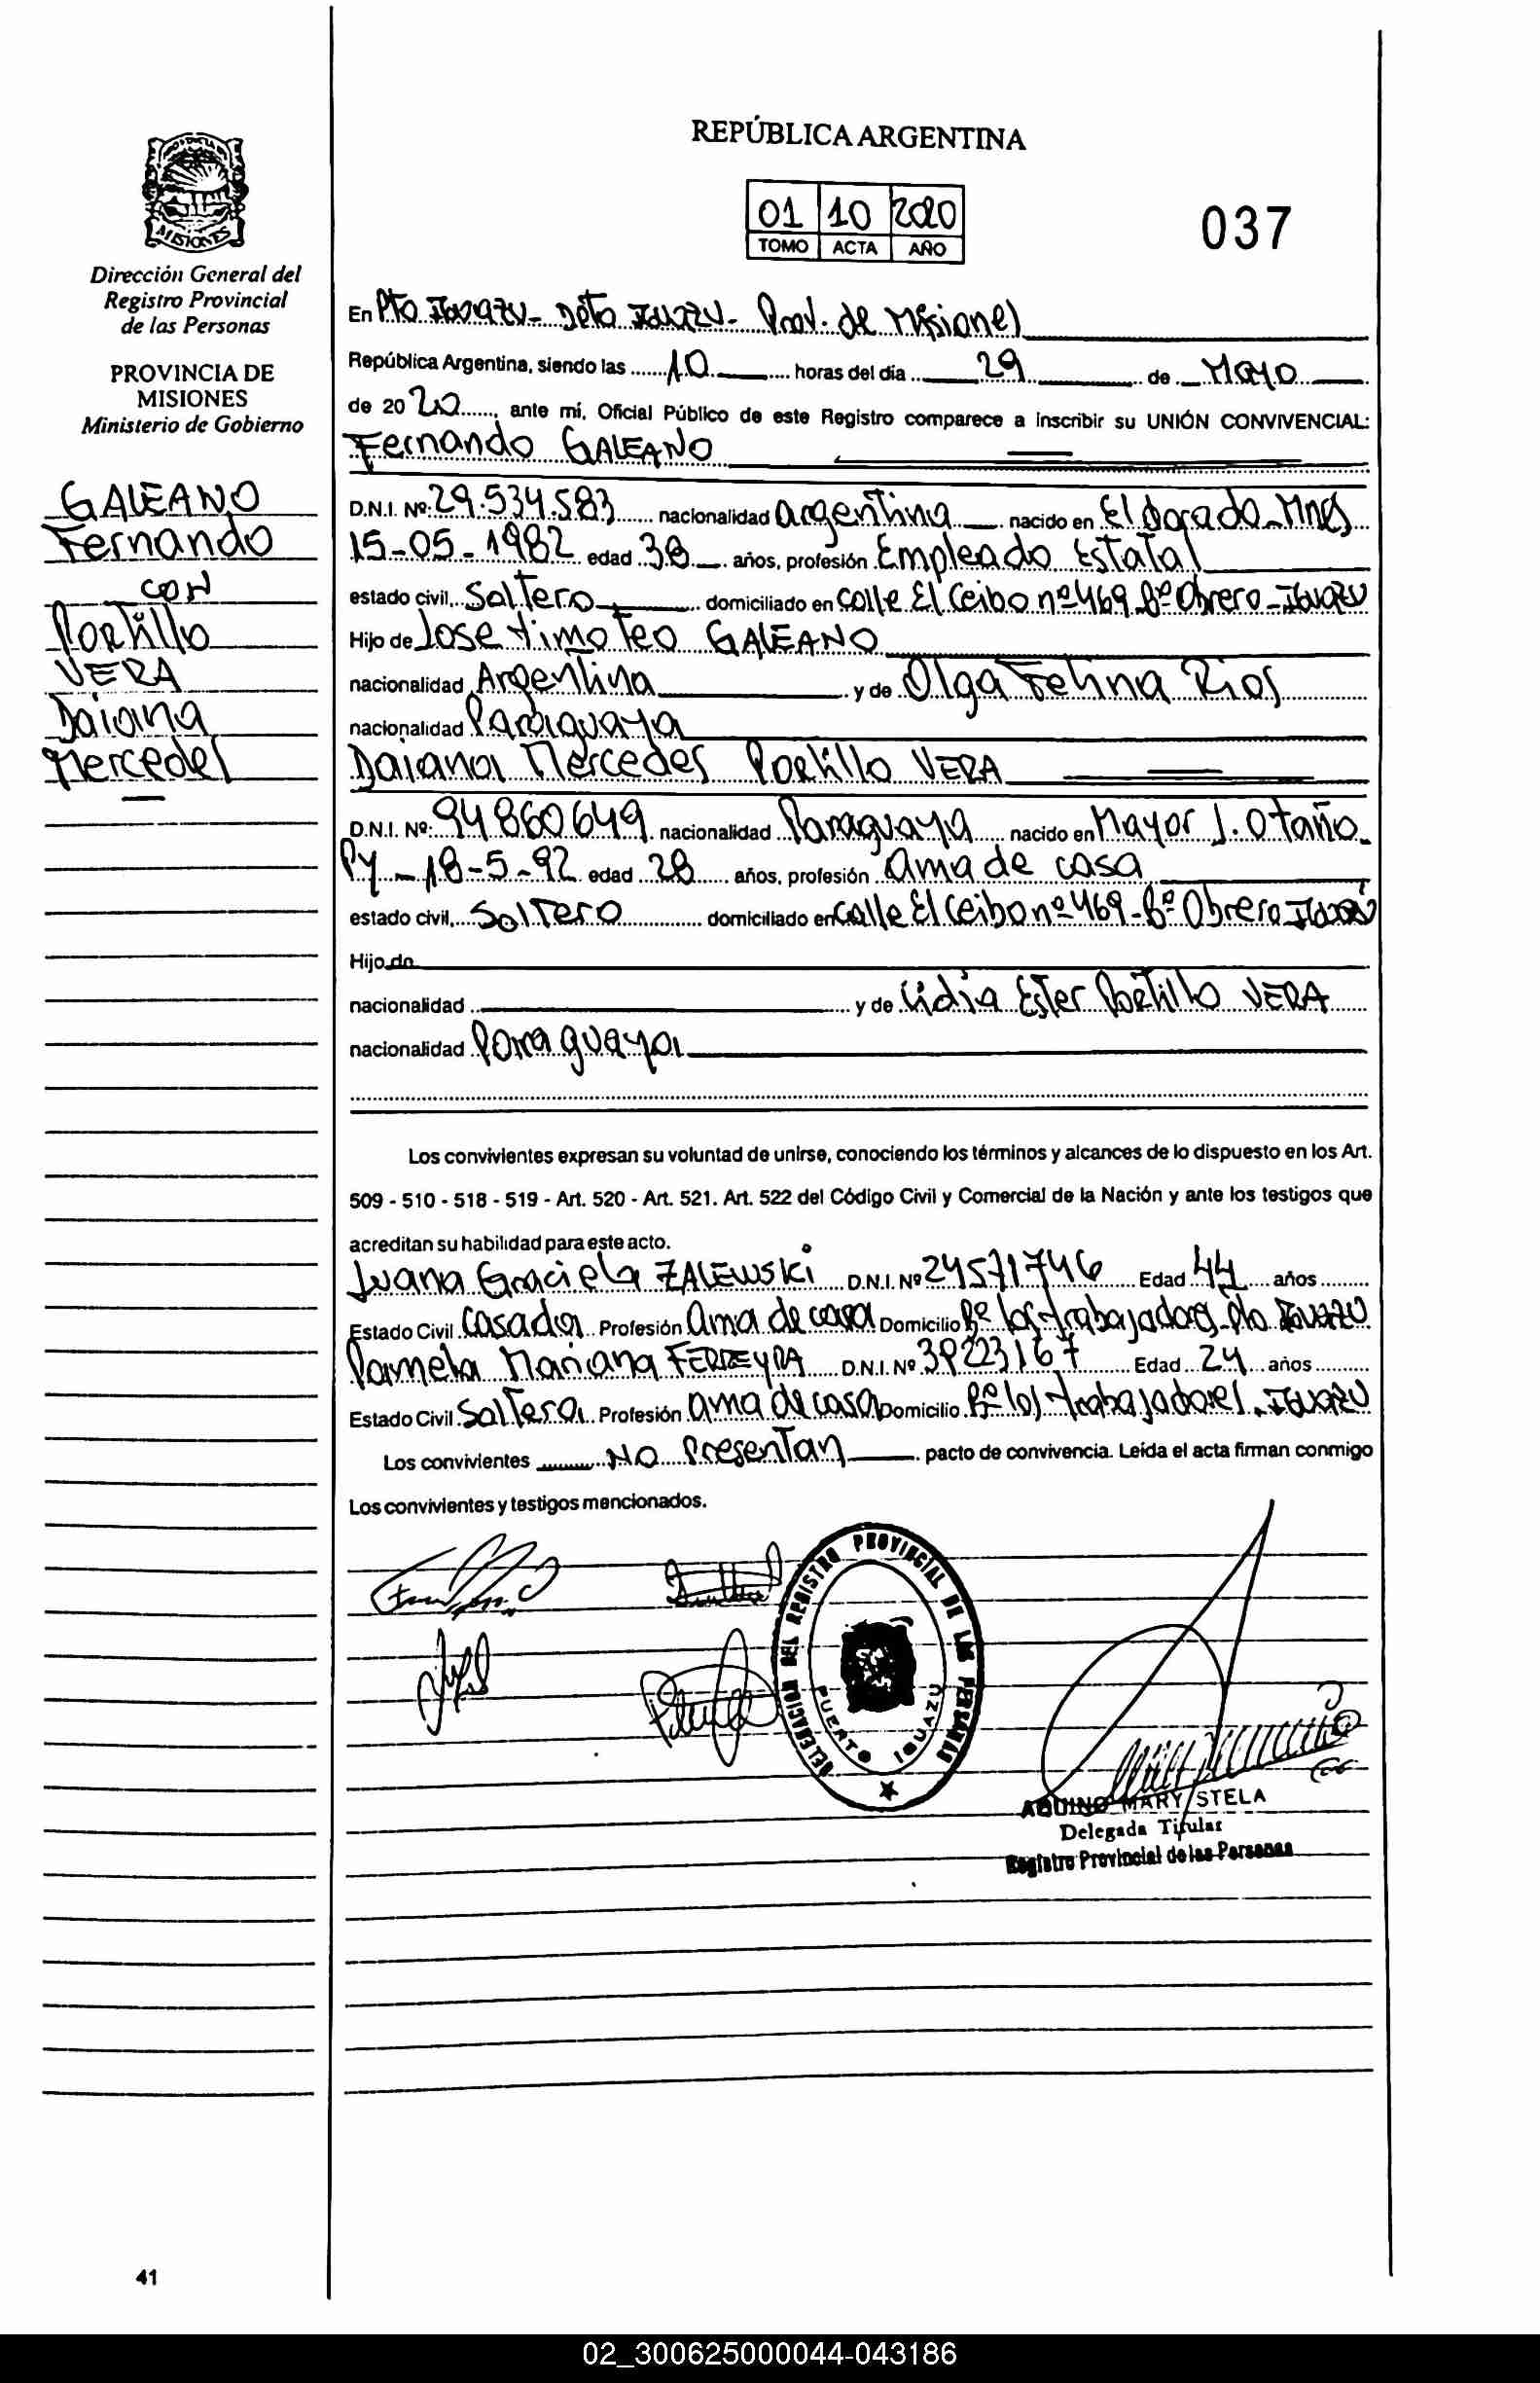 REPÚBLICA ARGENTINA
01 10 2020
TOMO ACTA AÑO
037
MISIONES
Dirección General del
Registro Provincial
de las Personas
PROVINCIA DE
MISIONES
Ministerio de Gobierno
GALEANO
Fernando
con
Portillo
VERA
Daiana
Mercedes
En Pto Iguazu - Dpto Iguazu - Prov. de Misiones
República Argentina, siendo las 10 horas del día 29 de Mayo
de 2020, ante mí, Oficial Público de este Registro comparece a inscribir su UNIÓN CONVIVENCIAL:
Fernando GALEANO
D.N.I. Nº: 29.534.583 nacionalidad argentina nacido en Eldorado Mnes
15-05-1982 edad 38 años, profesión Empleado Estatal
estado civil, Soltero domiciliado en calle El Ceibo nº 469 Bº Obrero - Iguazu
Hijo de Jose Timoteo GALEANO
nacionalidad Argentina y de Olga Felina Rios
nacionalidad Paraguaya
Daiana Mercedes Portillo VERA
D.N.I. Nº: 94860649 nacionalidad Paraguaya nacido en Mayor J. Otaño
PY - 18-5-92 edad 28 años, profesión ama de casa
estado civil, Soltero domiciliado en calle El Ceibo nº 469 - Bº Obrero Iguazú
Hijo de
nacionalidad y de Lidia Ester Portillo VERA
nacionalidad Paraguaya
Los convivientes expresan su voluntad de unirse, conociendo los términos y alcances de lo dispuesto en los Art.
509 - 510 - 518 - 519 - Art. 520 - Art. 521. Art. 522 del Código Civil y Comercial de la Nación y ante los testigos que
acreditan su habilidad para este acto.
Juana Graciela ZALEWSKI D.N.I. Nº 24571746 Edad 44 años
Estado Civil Casada Profesión Ama de casa Domicilio Bº los trabajadores Pto Iguazu
Pamela Mariana FERREYRA D.N.I. Nº 39223167 Edad 24 años
Estado Civil Soltera Profesión ama de casa Domicilio Bº los trabajadores Iguazu
Los convivientes No Presentan pacto de convivencia. Leída el acta firman conmigo
Los convivientes y testigos mencionados.
DELEGACION DEL REGISTRO PROVINCIAL DE LAS PERSONAS
PUERTO IGUAZU
AQUINO MARY STELA
Delegada Titular
Registro Provincial de las Personas
41
02_300625000044-043186